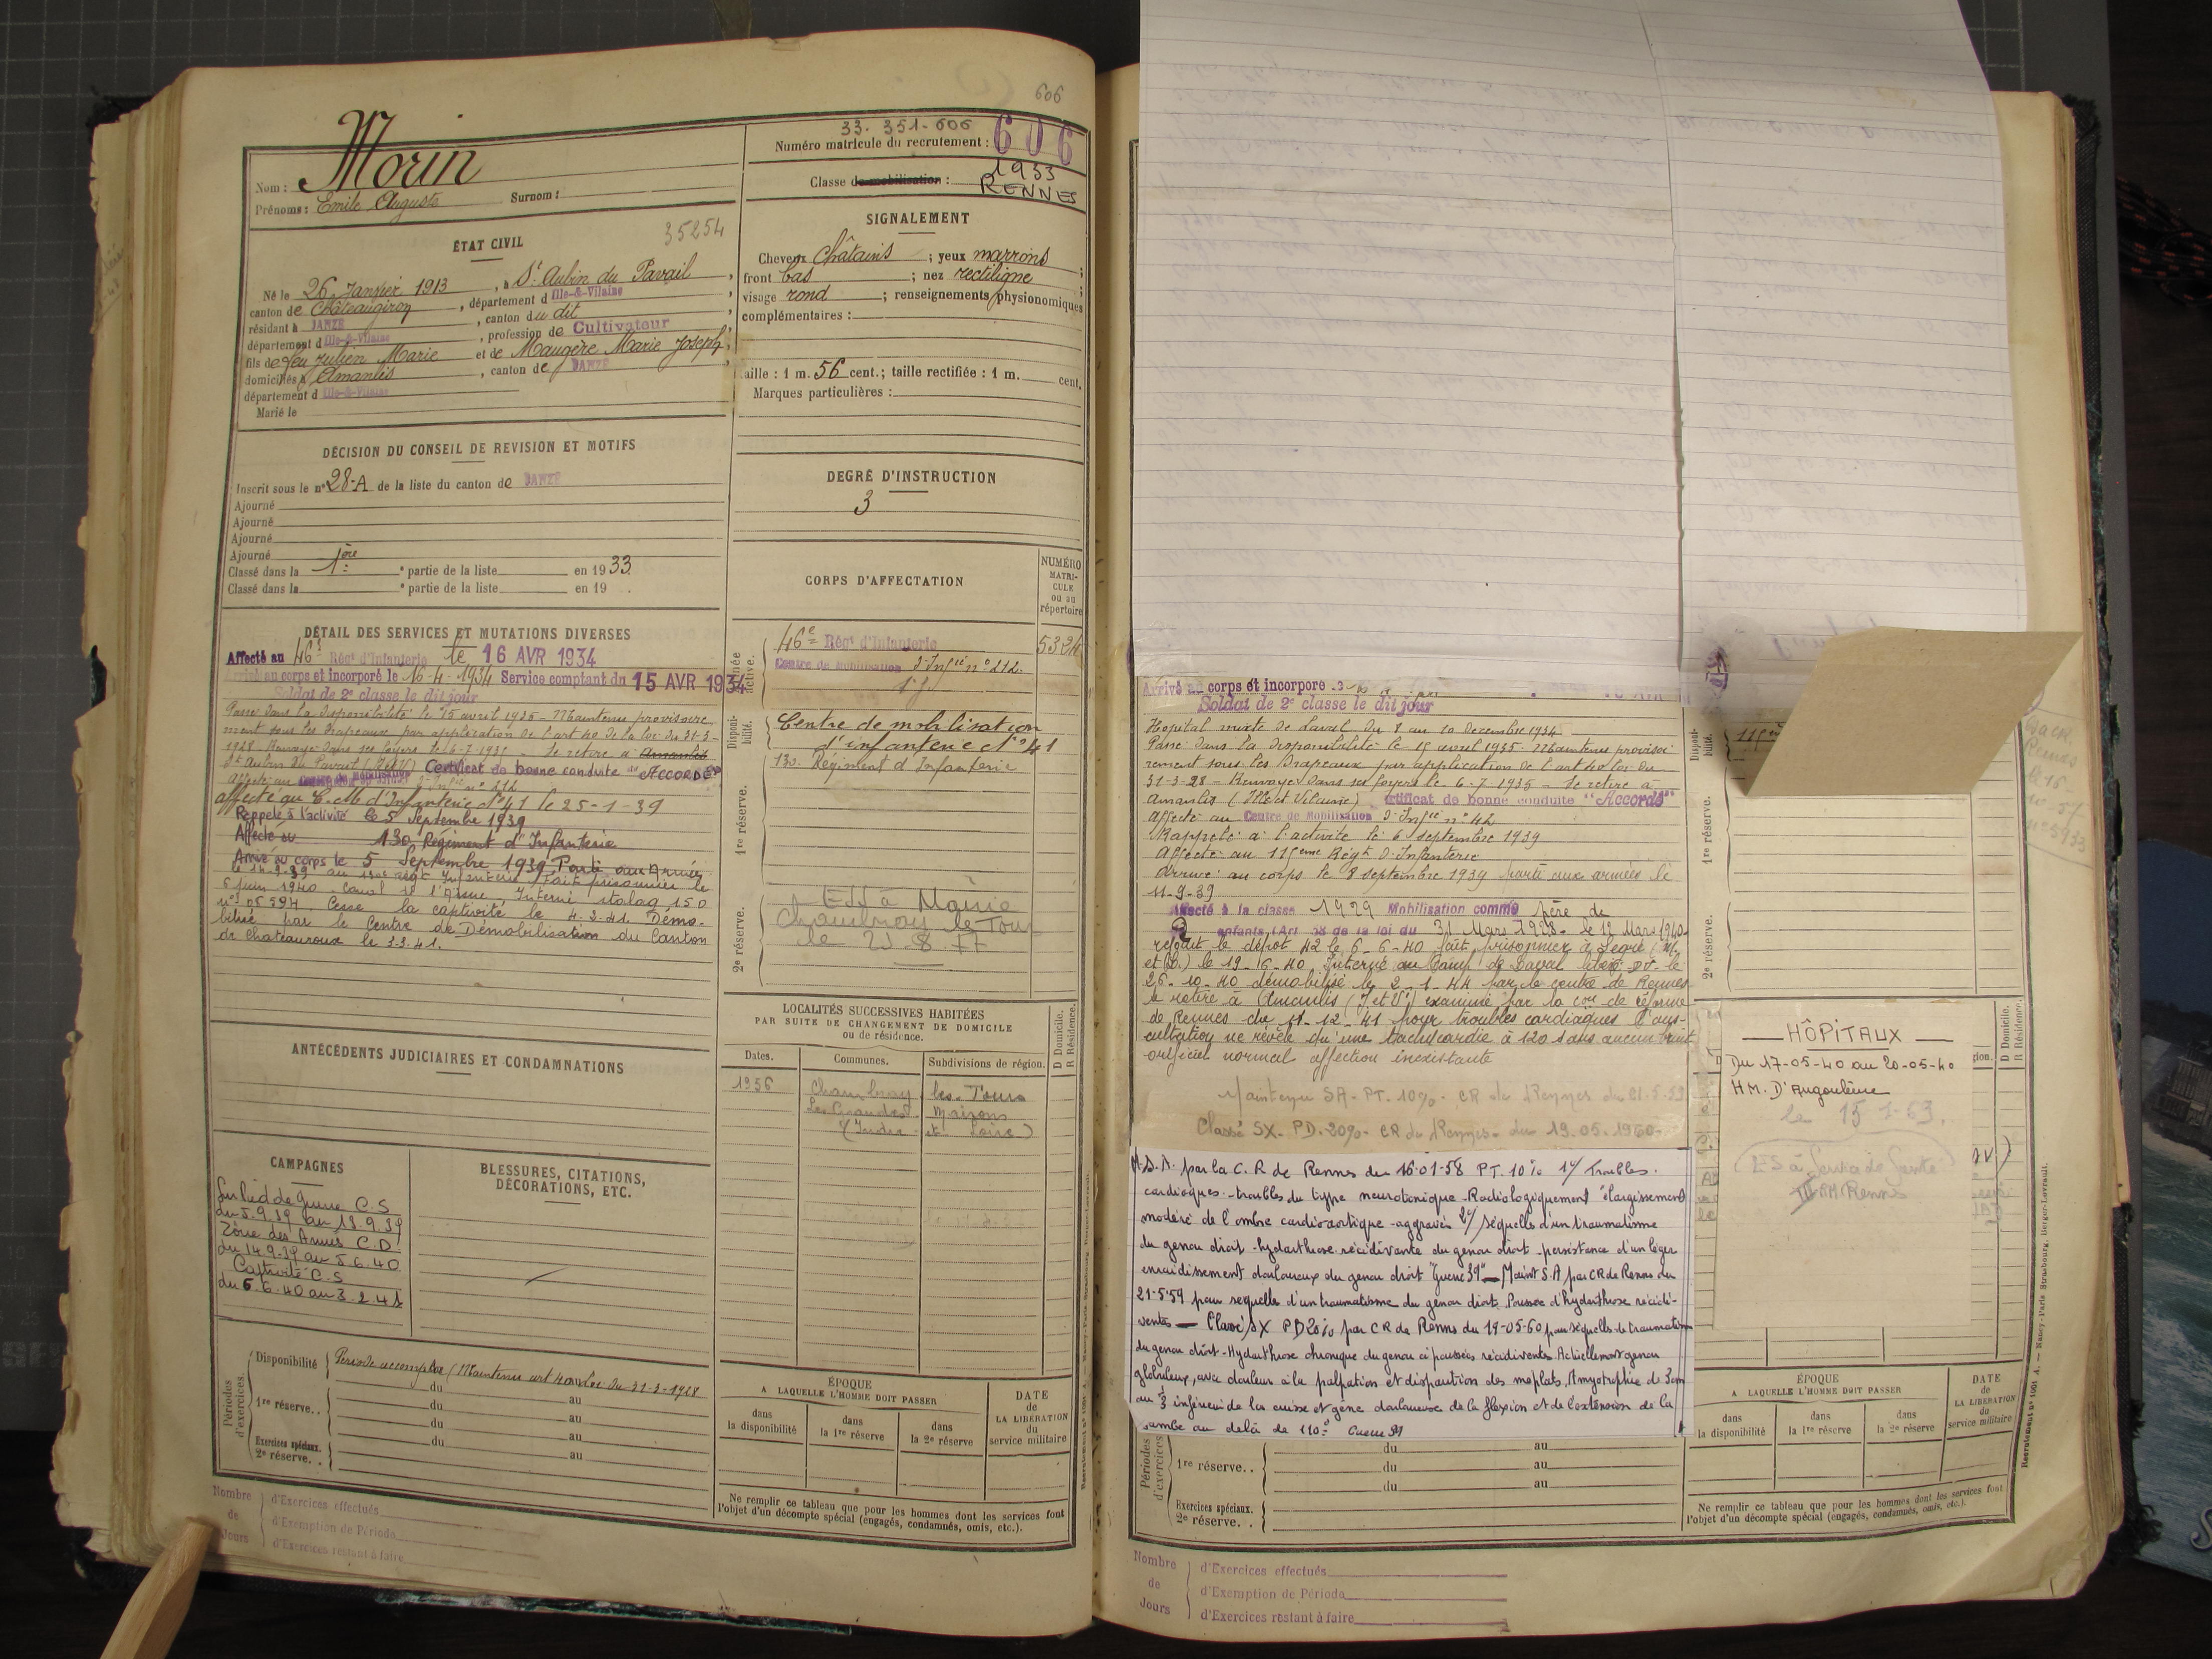 606
33. 351-606
Numéro matricule du recrutement : 606
Nom : Morin
Prénoms : Emile Auguste Surnom :
Classe de mobilisation : 1933
RENNES
ÉTAT CIVIL
35254
Né le 26 Janvier 1913, à St Aubin du Pavail,
canton de Châteaugiron, département d Ille-&-Vilaine
résidant à JANZÉ, canton du dit
département d Ille-&-Vilaine, profession de Cultivateur
fils de feu Julien Marie et de Maugère Marie Joseph,
domiciliés à Amanlis, canton de JANZÉ
département d Ille-&-Vilaine
Marié le
SIGNALEMENT
Cheveux châtains ; yeux marrons ;
front bas ; nez rectiligne ;
visage rond ; renseignements physionomiques
complémentaires :
taille : 1 m. 56 cent.; taille rectifiée : 1 m. cent.
Marques particulières :
DÉCISION DU CONSEIL DE REVISION ET MOTIFS
Inscrit sous le n° 28-A de la liste du canton de JANZÉ
Ajourné
Ajourné
Ajourné
Ajourné
Classé dans la 1ère partie de la liste en 1933
Classé dans la partie de la liste en 19 .
DEGRÉ D'INSTRUCTION
3
DÉTAIL DES SERVICES ET MUTATIONS DIVERSES
Affecté au 46e Régt d'Infanterie le 16 AVR 1934
Arrivé au corps et incorporé le 16-4-1934 Service comptant du 15 AVR 1934
Soldat de 2e classe le dit jour
Passé dans la disponibilité le 15 avril 1935 - Maintenu provisoire
ment sous les drapeaux par application de l'art 40 de la loi du 31-3-
1928. Renvoyé dans ses foyers le 6-7-1935 - Se retire à Amanlis
St Aubin du Pavail (I&V) Certificat de bonne conduite "ACCORDÉ"
Affecté au Centre de Mobilisation d'Infie n° 212
affecté au C.M d'Infanterie N°41 le 25-1-39
Rappelé à l'activité le 5 Septembre 1939
Affecté au 130 Régiment d'Infanterie
Arrivé au corps le 5 Septembre 1939 Parti aux Armées
le 14-9-39 au 130e Régt Infanterie Fait prisonnier le
6 juin 1940 canal de l'Aisne Interné stalag 150
n° 05594. Cesse la captivité le 4-2-41. Démo-
bilisé par le Centre de Démobilisation du Canton
de Chateauroux le 3.3.41.
CORPS D'AFFECTATION
NUMÉRO
MATRI-
CULE
ou au
répertoire
Armée active.
46e Régt d'Infanterie 5324
Centre de Mobilisation d'Infie n° 212.
Disponi-
bilité.
Centre de mobilisation
d'infanterie N°41
130 Régiment d'Infanterie
1re réserve.
2e réserve.
Chambray le Tour
le 23.8.77
LOCALITÉS SUCCESSIVES HABITÉES
PAR SUITE DE CHANGEMENT DE DOMICILE
ou de résidence.
Dates. Communes. Subdivisions de région. D Domicile. R Résidence.
1956 Chambray les-Tours
Les Grandes Maisons
(Indre et Loire)
ANTÉCÉDENTS JUDICIAIRES ET CONDAMNATIONS
CAMPAGNES
Sur Pied de Guerre C.S
du 5.9.39 au 13.9.39
Zône des Armées C.D.
du 14 9.39 au 5.6.40
Captivité C.S
du 6.6.40 au 3.2.41
BLESSURES, CITATIONS,
DÉCORATIONS, ETC.
Périodes d'exercices.
Disponibilité Période accomplie (Maintenu art 40 loi du 31-3-1928
du au
1re réserve.. du au
du au
Exercices spéciaux. du au
2e réserve..
ÉPOQUE
A LAQUELLE L'HOMME DOIT PASSER
dans la disponibilité
dans la 1re réserve
dans la 2e réserve
DATE de LA LIBÉRATION du service militaire
Ne remplir ce tableau que pour les hommes dont les services font
l'objet d'un décompte spécial (engagés, condamnés, omis, etc.).
Nombre de Jours
d'Exercices effectués
d'Exemption de Période
d'Exercices restant à faire
Arrivé au corps et incorporé
Soldat de 2e classe le dit jour
Hopital mixte de Laval du 8 au 10 décembre 1934
Passé dans la disponibilité le 15 avril 1935 - Maintenu provisoi
rement sous les Drapeaux par application de l'art 40 loi du
31-3-28 - Renvoyé dans ses foyers le 6-7-1935 - Se retire à
Amanlis (Ille et Vilaine) Certificat de bonne conduite "Accordé"
Affecté au Centre de Mobilisation d'Infie n° 42
Rappelé à l'activité le 6 septembre 1939
Affecté au 115eme Régt d'Infanterie
Arrivé au corps le 8 septembre 1939 parti aux armées le
11-9-39
Affecté à la classe 1929 Mobilisation comme père de
2 enfants (Art 58 de la loi du 31 Mars 1928- le 12 Mars 1940
rejoint le dépôt 42 le 6-6-40 fait prisonnier à Segré (M.
et L.) le 19-16-40 Interné au Camp de Laval libéré le
26-10-40 démobilisé le 2-1-44 par le centre de Rennes
se retire à Amanlis (I et V) examiné par la con de réforme
de Rennes du 11-12-41 pour troubles cardiaques l'aus-
cultation ne révèle qu'une tachycardie à 120 sans aucun bruit
orificiel normal affection inexistante
Maintenu SA - PT. 10% - CR de Rennes du 21.5.59
Classé SX - PD-20% - CR de Rennes - du 19.05.1960-
M.S.A. par la C.R de Rennes du 16.01.58 PT.10% 1°/ Troubles.
cardiaques - troubles du type neurotonique - Radiologiquement élargissement
modéré de l'ombre cardioaortique - aggravés 2°/ séquelles d'un traumatisme
du genou droit - hydarthrose récidivante du genou droit - persistance d'un léger
enraidissement douloureux du genou droit "Guerre 39" — Maint S.A par CR de Rennes du
21-5-59 pour sequelle d'un traumatisme du genou droit. Poussée d'hydarthrose récidi-
ventes — Classé SX PD 20% par CR de Rennes du 19-05-60 pour séquelles de traumatisme
du genou droit - Hydarthrose chronique du genou à poussées récidiventes. Actuellement genou
globuleux, avec douleur à la palpation et disparition des méplats. Amyotrophie de 3cm
au 1/3 inférieur de la cuisse et gêne douloureuse de la flexion et de l'extension de la
jambe au delà de 110° Guerre 39
Périodes d'exercices
1re réserve..
du au
du au
du au
Exercices spéciaux.
2e réserve..
Disponi-
bilité.
1re réserve.
2e réserve.
HÔPITAUX
Du 17-05-40 au 20-05-40
H.M. D'Angoulême
le 15 1-63.
Rennes
D Domicile.
R Résidence.
ÉPOQUE
A LAQUELLE L'HOMME DOIT PASSER
dans la disponibilité
dans la 1re réserve
dans la 2e réserve
DATE de LA LIBÉRATION du service militaire
Ne remplir ce tableau que pour les hommes dont les services font
l'objet d'un décompte spécial (engagés, condamnés, omis, etc.).
Nombre de Jours
d'Exercices effectués
d'Exemption de Période
d'Exercices restant à faire